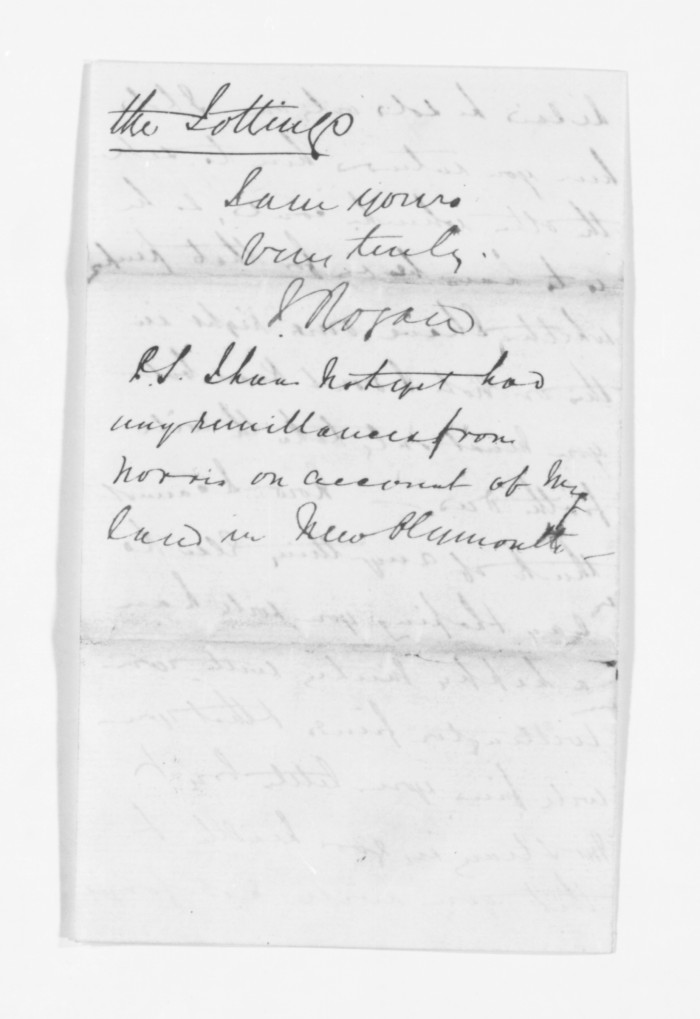 the Jottings
I am yours
very truly.
J. Rogan
P.S. I have not yet had
any remittances from
Norris on account of my
land in New Plymouth